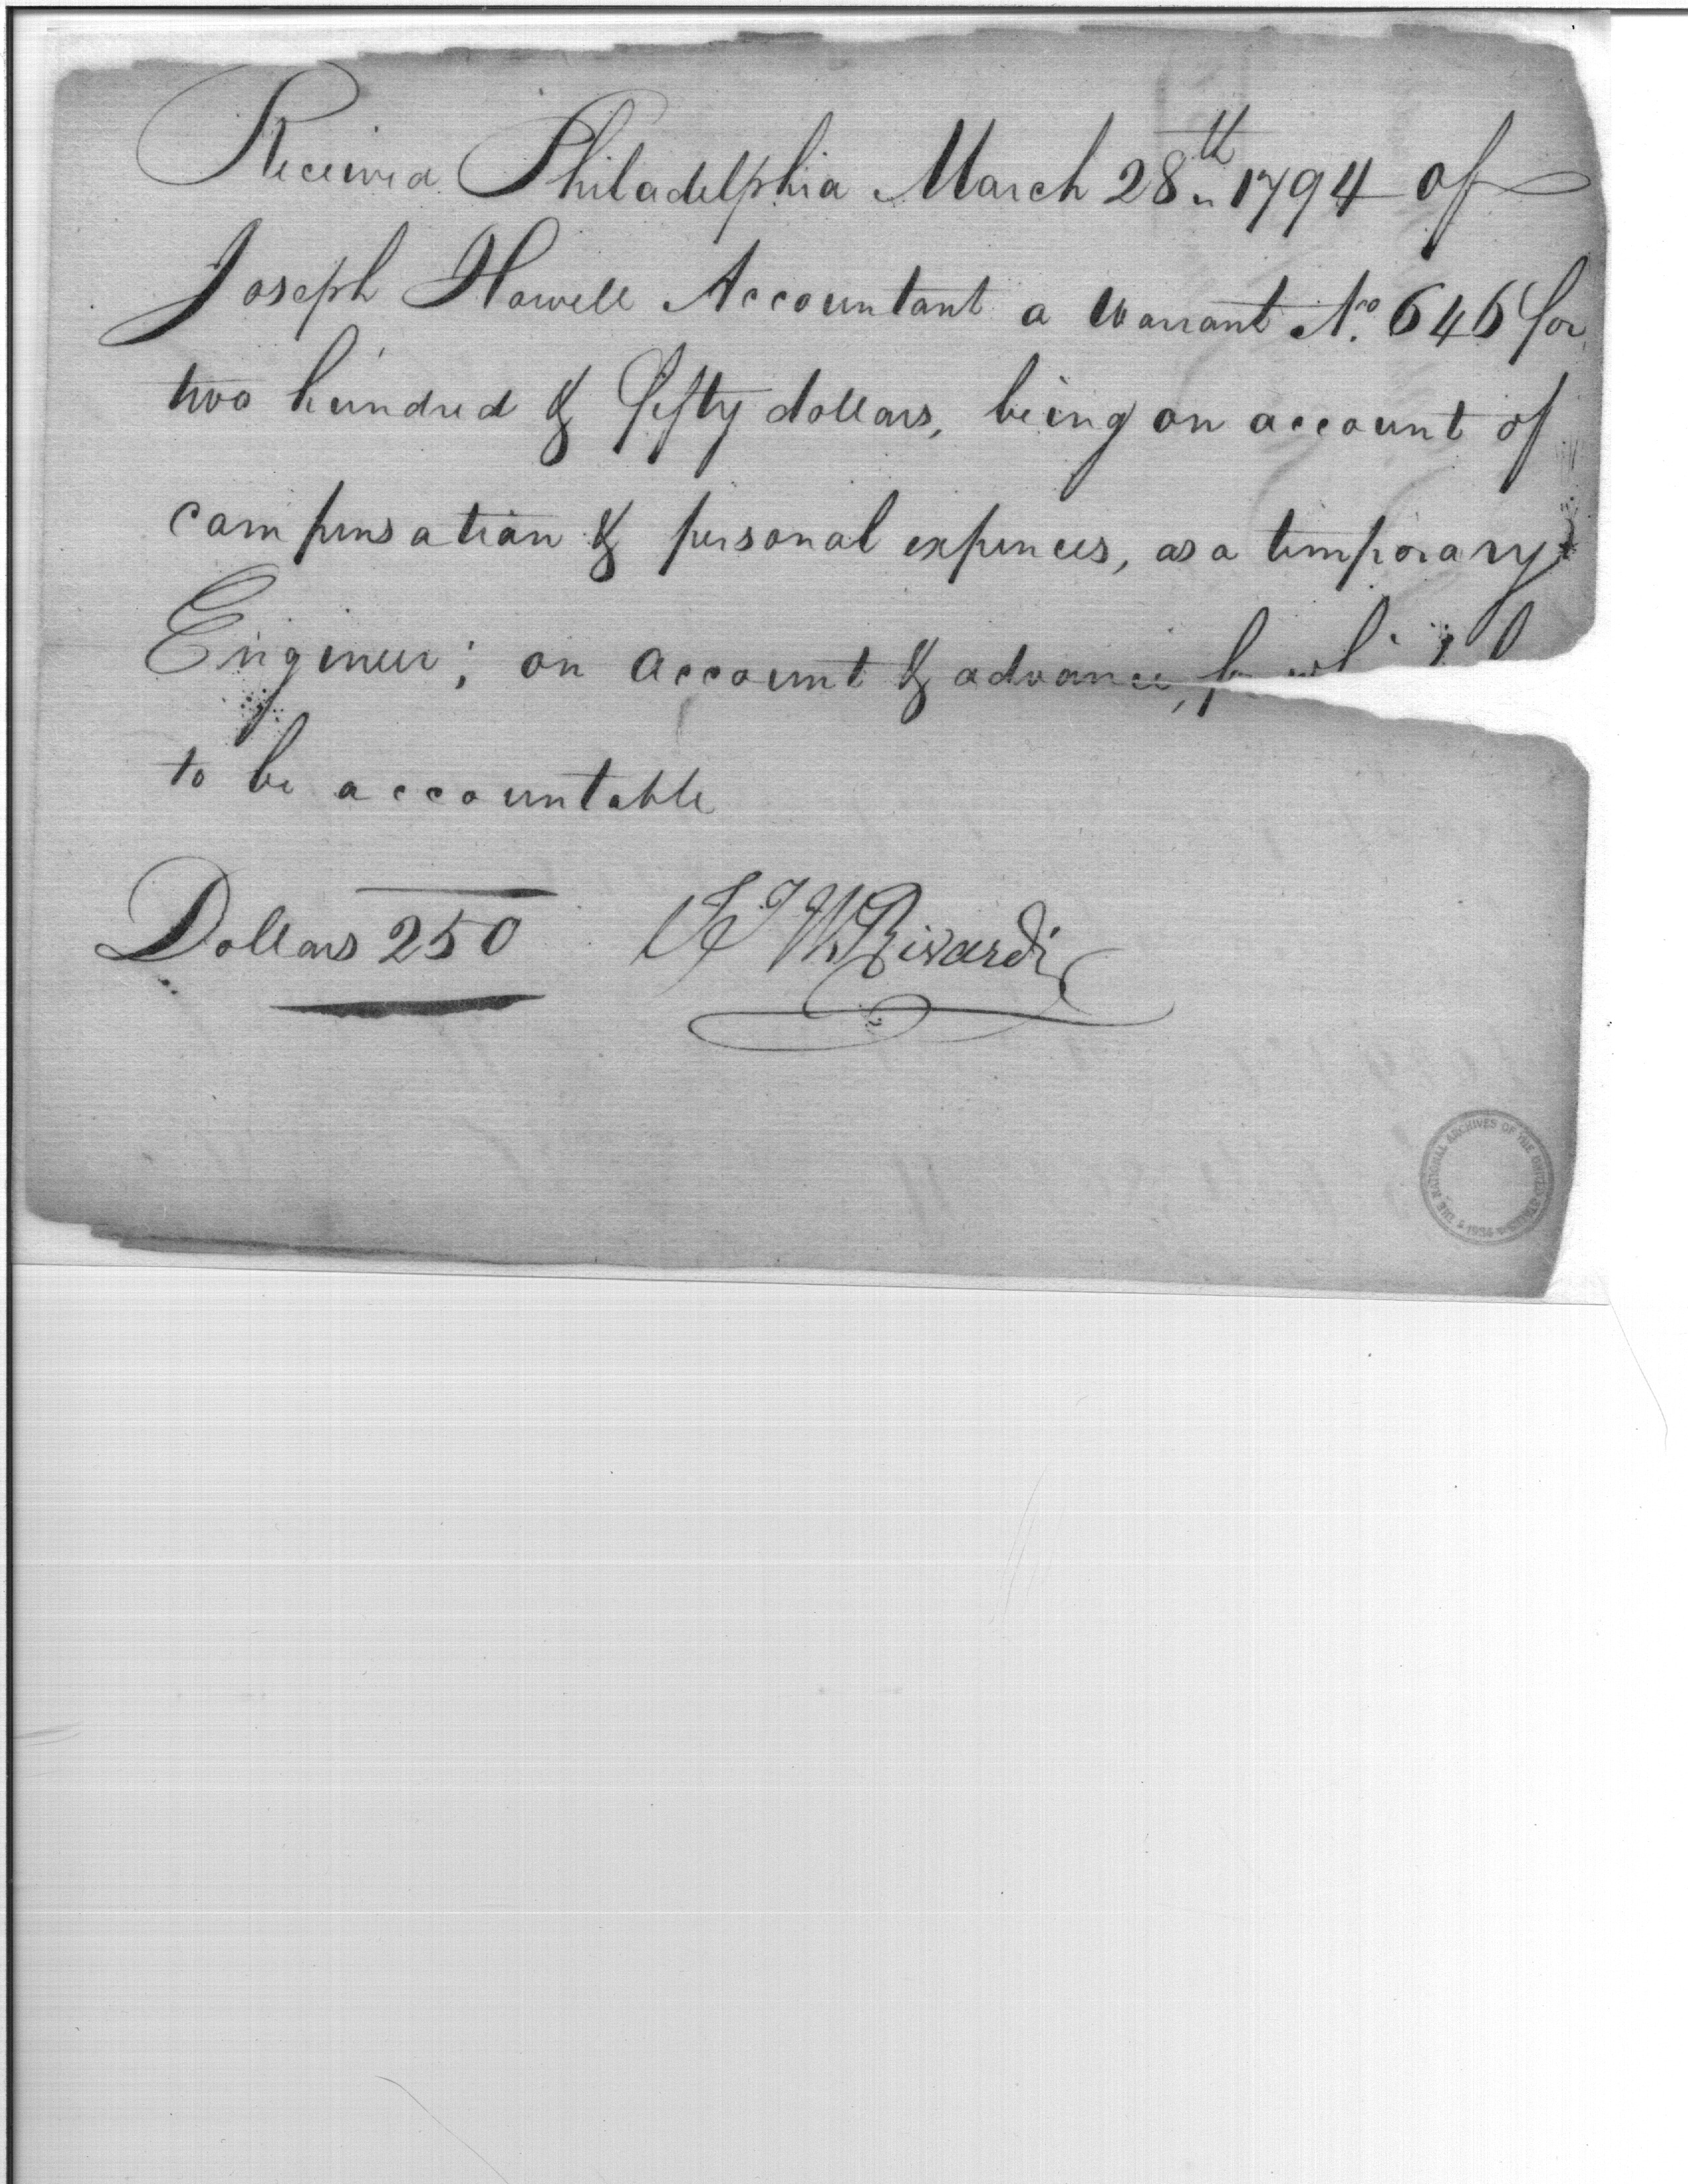 Received Philadelphia March 28th 1794 of
Joseph Howell Accountant a Warrant No. 646 for
two hundred & fifty dollars, being on account of
compensation & personal expences, as a temporary
Engineer; on account & advance,
to be accountable
Dollars 250 J J U Rivardi
THE NATIONAL ARCHIVES OF THE UNITED STATES 1934